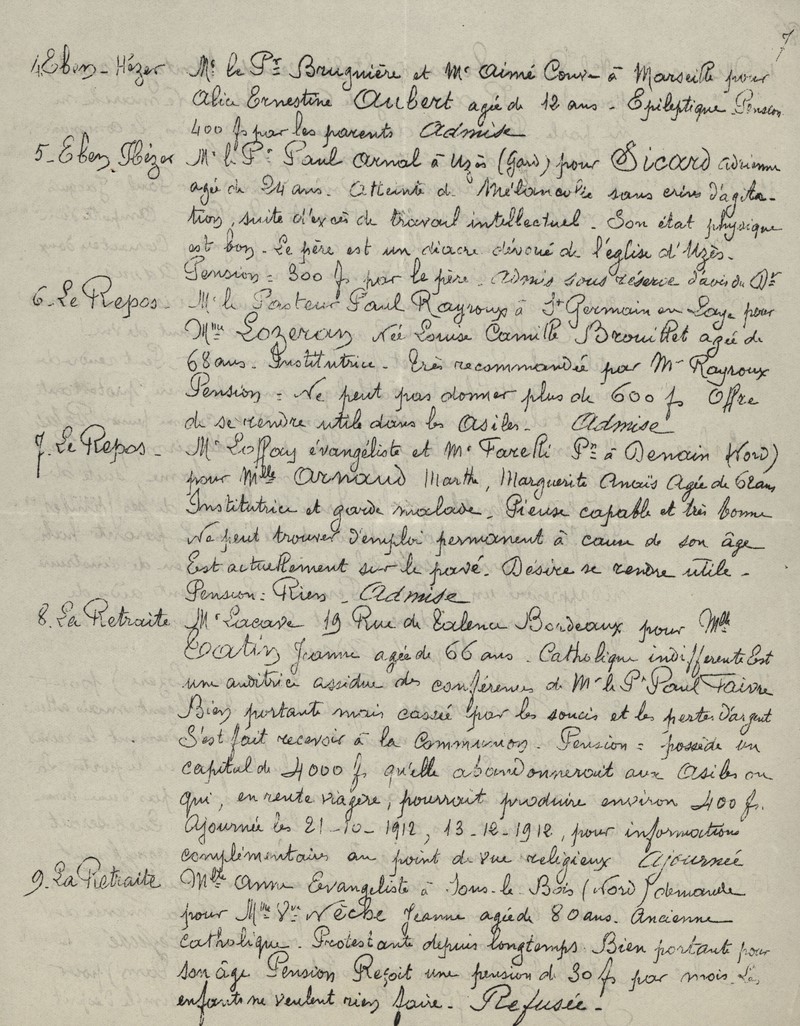 7
4. Eben-Hézer Mr le Pr Brugnière et Mr Aimé Couve à Marseille pour
Alice Ernestine Aubert agée de 12 ans - Epileptique Pension
400 fs par les parents Admise
5- Eben-Hézer Mr le Pr Paul Arnal à Uzès (Gard) pour Sicard Adrienne
agée de 24 ans. Atteinte de Mélancolie sans crises d'agita-
tion, suite d'excès de travail intellectuel. Son état physique
est bon. Le père est un diacre dévoué de l'église d'Uzès.
Pension = 300 fs par le père. Admis sous réserve d'avis du Dr
6- Le Repos - Mr le Pasteur Paul Rayroux à St Germain en Laye pour
Mme Lozeran née Louise Camille Brouillet agée de
68 ans. Institutrice. Très recommandée par Mr Rayroux
Pension = Ne peut pas donner plus de 600 fs Offre
de se rendre utile dans les Asiles. Admise
7. Le Repos - Mr Loffay évangéliste et Mr Farelli Pr à Denain (Nord)
pour Melle Arnaud Marthe, Marguerite Anaïs Agée de 62 ans
Institutrice et garde malade. Pieuse capable et très bonne
Ne peut trouver d'emploi permanent à cause de son âge
Est actuellement sur le pavé. Désire se rendre utile -
Pension = Rien - Admise
8. La Retraite Mr Lacave 19 Rue de Talence Bordeaux pour Melle
Jeanne agée de 66 ans. Catholique indifferente Est
une auditrice assidue des conférences de Mr le Pr Paul Faivre
Bien portante mais cassée par les soucis et les pertes d'argent
S'est fait recevoir à la Communion. Pension = possède un
capital de 4000 fs qu'elle abandonnerait aux Asiles ou
qui, en rente viagère, pourrait produire environ 400 fs.
Ajournée les 21-10-1912, 13-12-1912, pour informations
complémentaires au point de vue religieux Ajournée
9. La Retraite Melle Anne Evangeliste à Sous-le-Bois (Nord) demande
pour Mme Vve Nèche Jeanne agée de 80 ans. Ancienne
catholique. Protestante depuis longtemps. Bien portante pour
son âge Pension Reçoit une pension de 30 fs par mois. Les
enfants ne veulent rien faire - Refusée -